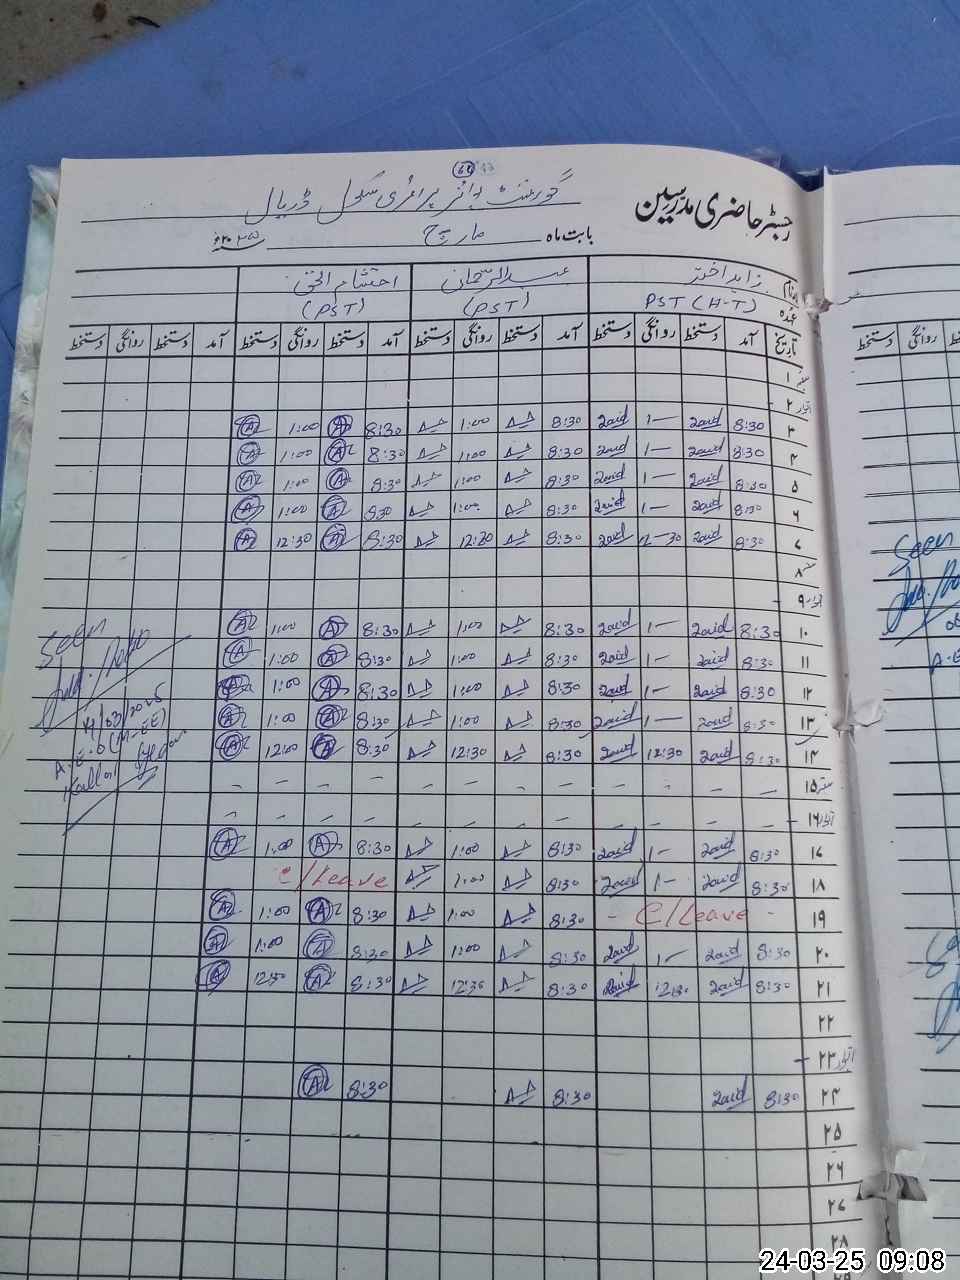 رجسٹر حاضری مدرسین
گورنمنٹ پرائمری سکول ڈریال
بابت ماہ مارچ ۲۰۲۵ء
نام زاہد اختر عبدالرحمانی احتشام الحق
عہدہ PST (H-T) (PST) (PST)
تاریخ آمد دستخط روانگی دستخط آمد دستخط روانگی دستخط آمد دستخط روانگی دستخط آمد دستخط روانگی دستخط
۱
۲ اتوار
۳ 8:30 Zaid 1— Zaid 8:30 1:00 8:30 1:00
۴ 8:30 Zaid 1— Zaid 8:30 1:00 8:30 1:00
۵ 8:30 Zaid 1— Zaid 8:30 1:00 8:30 1:00
۶ 8:30 Zaid 1— Zaid 8:30 1:00 8:30 1:00
۷ 8:30 Zaid Zaid 8:30 12:30 8:30 12:30
۸
۹ اتوار
۱۰ 8:30 Zaid 1— Zaid 8:30 1:00 8:30 1:00
۱۱ 8:30 Zaid 1— Zaid 8:30 1:00 8:30 1:00
۱۲ 8:30 Zaid 1— Zaid 8:30 1:00 8:30 1:00
۱۳ 8:30 Zaid 1— Zaid 8:30 1:00 8:30 1:00
۱۴ 8:30 Zaid 12:30 Zaid 8:30 12:30 8:30 12:00
۱۵
۱۶ اتوار
۱۷ 8:30 Zaid 1— Zaid 8:30 1:00 8:30 1:00
۱۸ 8:30 Zaid 1— Zaid 8:30 1:00 C/Leave
۱۹ - C/Leave - 8:30 1:00 8:30 1:00
۲۰ 8:30 Zaid 1— Zaid 8:30 1:00 8:30 1:00
۲۱ 8:30 Zaid 12:30 Zaid 8:30 12:30 8:30 12:30
۲۲
۲۳ اتوار
۲۴ 8:30 Zaid 8:30 8:30
۲۵
۲۶
۲۷
۲۸
Seen
14/03/2025
A.E.O (M-EE)
Kallar Syedan
دستخط روانگی
Seen
24-03-25 09:08